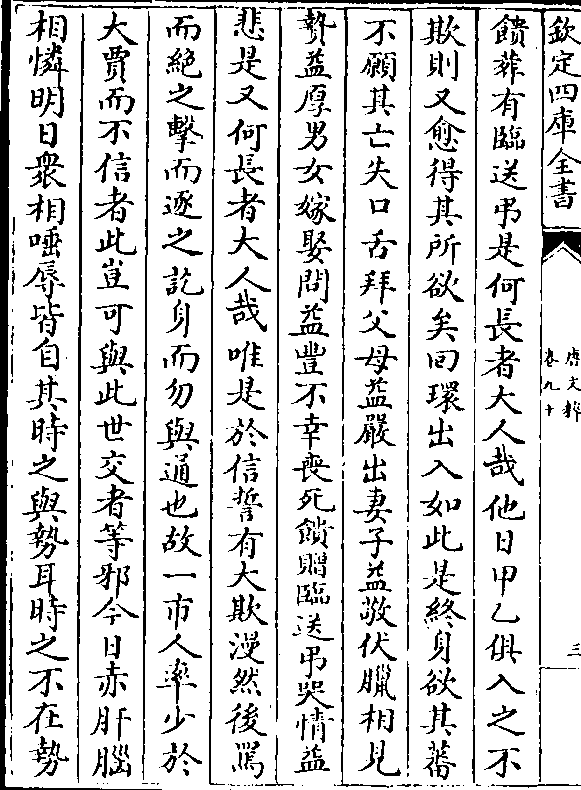 欽定四庫全書
唐文粹
卷九十
三
饋葬有臨送弔是何長者大人哉他日甲乙俱入之不
欺則又愈得其所欲矣回環出入如此是終身欲其蕃
不願其亡失口舌拜父母益嚴出妻子益敬伏臘相見
贄益厚男女嫁娶問益豐不幸喪死饋贈臨送弔哭情益
悲是又何長者大人哉唯是於信誓有大欺漫然後罵
而絶之擊而逐之訖身而勿與通也故一市人率少於
大賈而不信者此豈可與此世交者等邪今日赤肝腦
相憐明日衆相唾辱皆自其時之與勢耳時之不在勢